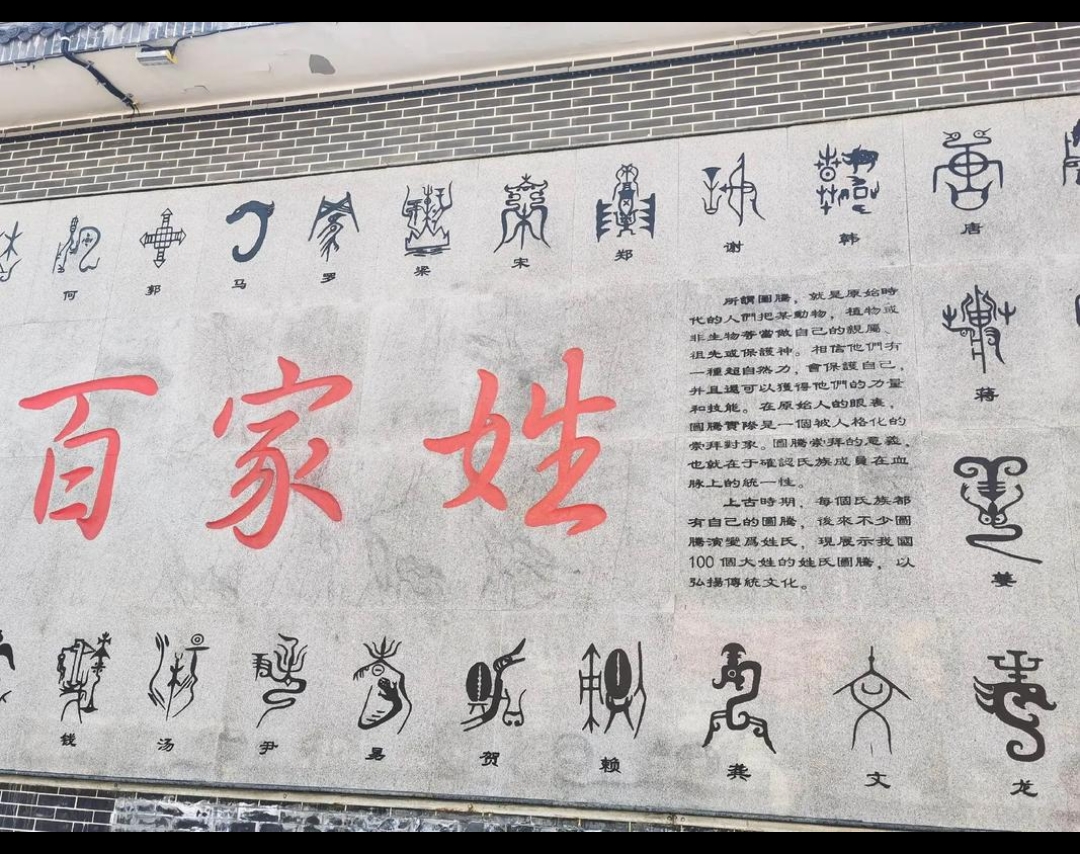 何 郭 马 罗 梁 宋 郑 谢 韩 唐
百家姓
所謂圖騰，就是原始時
代的人們把某動物，植物或
非生物等當做自己的親屬、
祖先或保護神。相信他們有
一種超自然力，會保護自己，
并且還可以獲得他們的力量
和技能。在原始人的眼裏，
圖騰實際是一個被人格化的
崇拜對象。圖騰崇拜的意義，
也就在于確認氏族成員在血
脉上的統一性。
上古時期，每個氏族都
有自己的圖騰，後來不少圖
騰演變爲姓氏，現展示我國
100個大姓的姓氏圖騰，以
弘揚傳統文化。
蒋
姜
钱 汤 尹 易 贺 赖 龚 文 龙